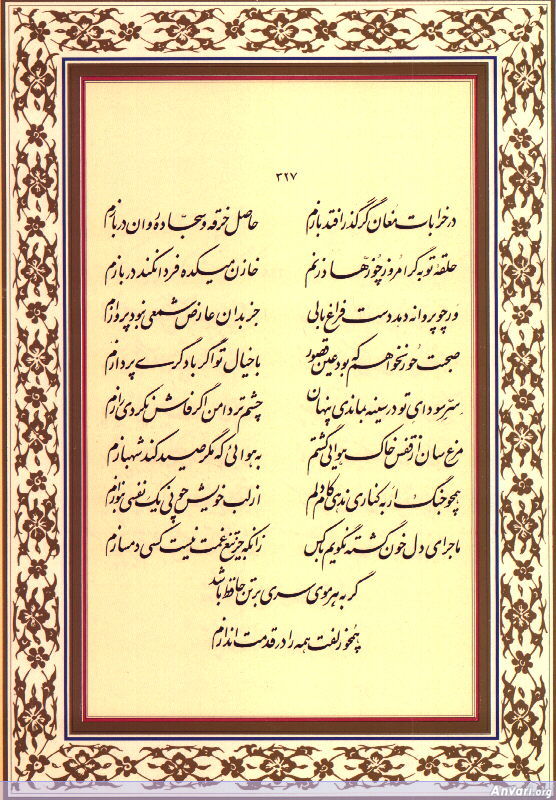 ۳۲۷
در خرابات مغان گر گذر افتد بازم حاصل خرقه و سجّاده روان دربازم
حلقهٔ توبه گر امروز چو زهّاد زنم خازن میکده فردا نکند در بازم
ور چو پروانه دهد دست فراغ بالی جز بدان عارض شمعی نبود پروازم
صحبت حور نخواهم که بود عین قصور با خیال تو اگر با دگری پردازم
سرّ سودای تو در سینه بماندی پنهان چشم تر دامن اگر فاش نکردی رازم
مرغ سان از قفس خاک هوائی گشتم به هوائی که مگر صید کند شهبازم
همچو چنگ ار به کناری ندهی کام دلم از لب خویش چو نی یک نفسی بنوازم
ماجرای دل خون گشته نگویم با کس زانکه جز تیغ غمت نیست کسی دمسازم
گر به هر موی سری بر تن حافظ باشد
همچو زلفت همه را در قدمت اندازم
Anvari.org